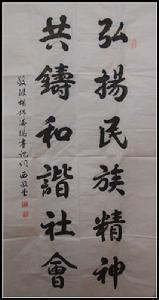 弘揚民族精神
共鑄和諧社會